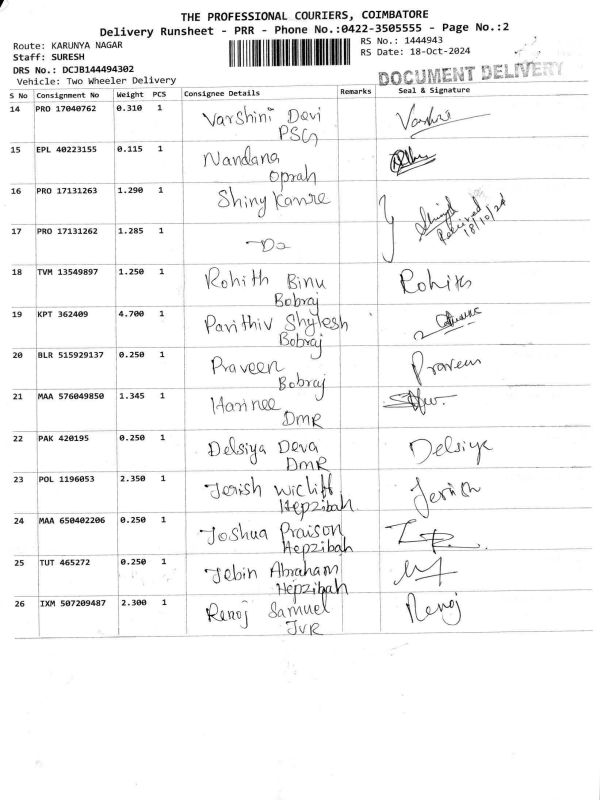 THE PROFESSIONAL COURIERS, COIMBATORE
Delivery Runsheet - PRR - Phone No.:0422-3505555 - Page No.:2
Route: KARUNYA NAGAR
RS No.: 1444943
Staff: SURESH
RS Date: 18-Oct-2024
DRS No.: DCJB144494302
DOCUMENT DELIVERY
Vehicle: Two Wheeler Delivery
S No Consignment No Weight PCS Consignee Details Remarks Seal & Signature
14 PRO 17040762 0.310 1 Varshini Devi
PSG
15 EPL 40223155 0.115 1 Nandana
Oprah
16 PRO 17131263 1.290 1 Shiny Kanre
Received
18/10/24
17 PRO 17131262 1.285 1 Do
18 TVM 13549897 1.250 1 Rohith Binu Rohith
Bobraj
19 KPT 362409 4.700 1 Parithiv Shylesh
Bobraj
20 BLR 515929137 0.250 1 Praveen Praveen
Bobraj
21 MAA 576049850 1.345 1 Harinee
DMR
22 PAK 420195 0.250 1 Delsiya Deva Delsiya
DMR
23 POL 1196053 2.350 1 Jerish Wicliff Jerish
Hepzibah
24 MAA 650402206 0.250 1 Joshua Praison
Hepzibah
25 TUT 465272 0.250 1 Jebin Abraham
Hepzibah
26 IXM 507209487 2.300 1 Renoj Samuel Renoj
JVR